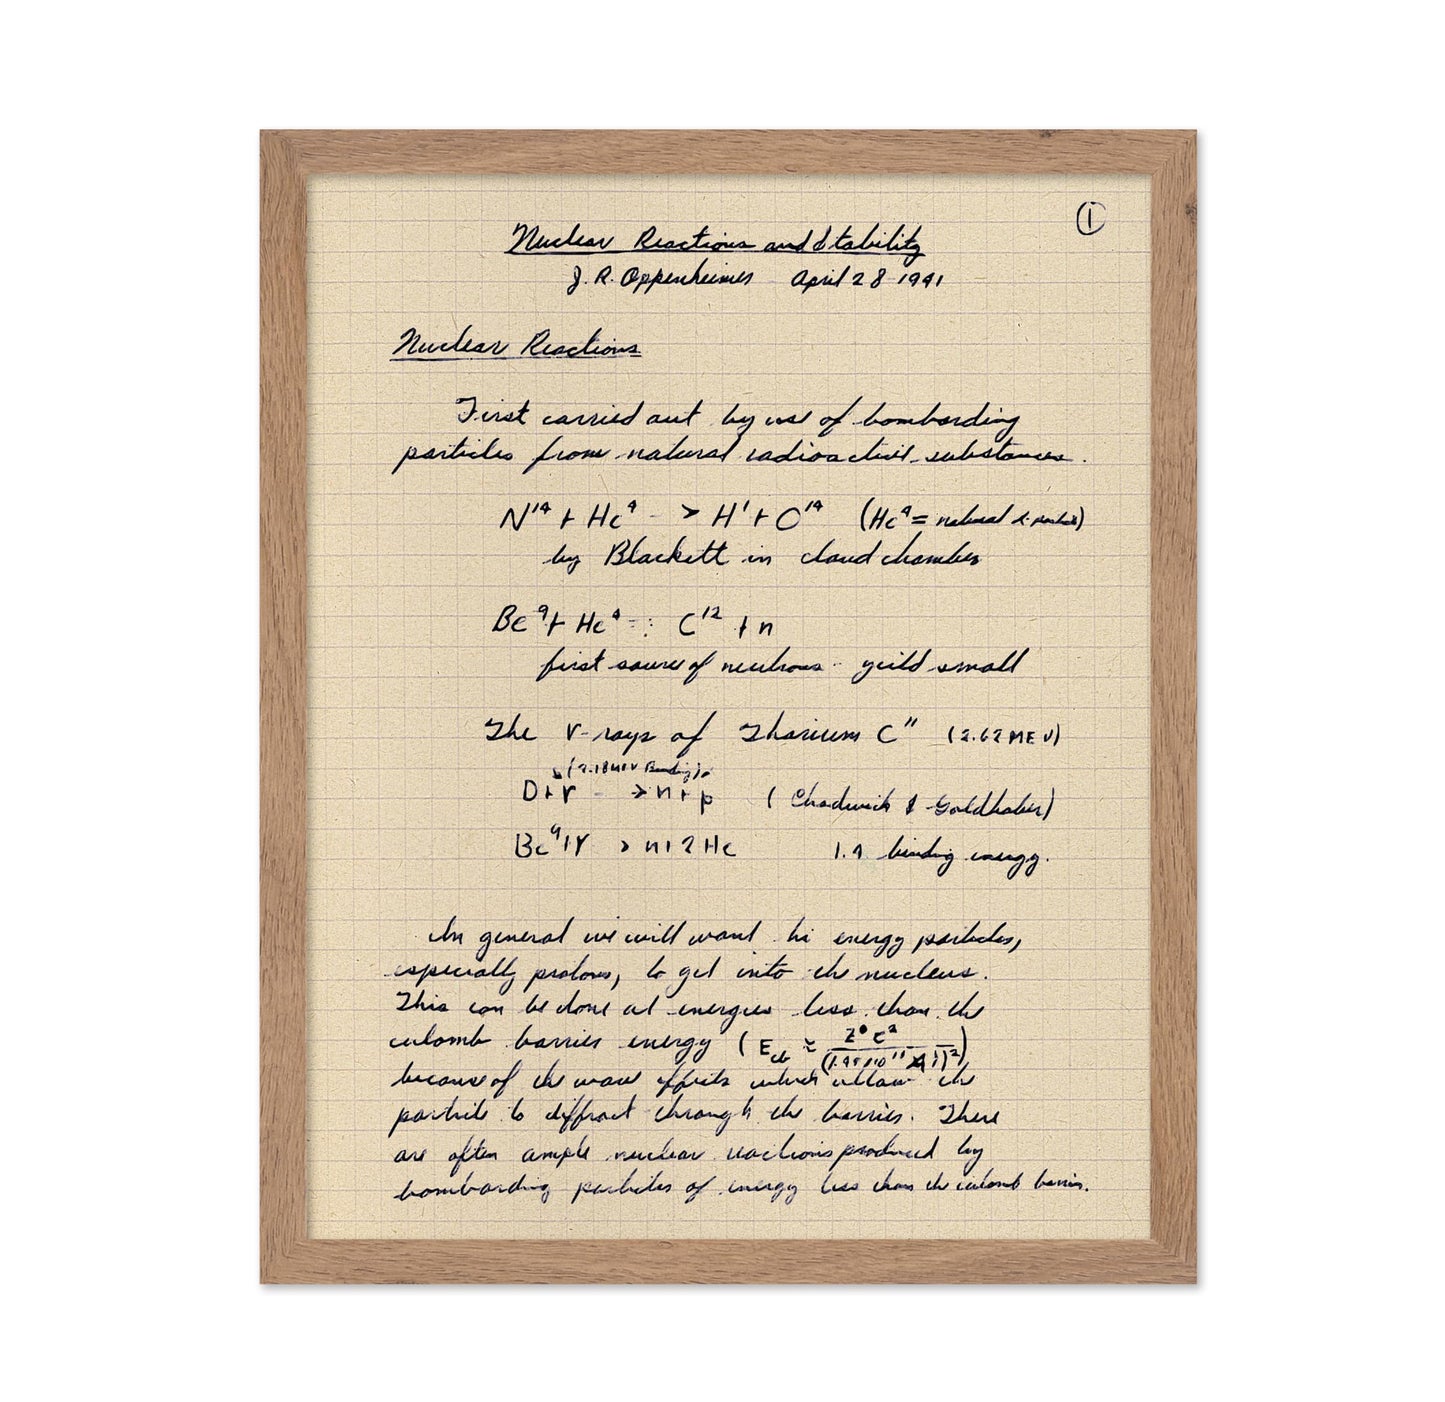 ①
Nuclear Reactions and Stability
J. R. Oppenheimer April 28 1941
Nuclear Reactions
First carried out by use of bombarding
particles from natural radioactive substances.
N¹⁴ + He⁴ -> H¹ + O¹⁴ (He⁴ = natural α-particle)
by Blackett in cloud chamber
Be⁹ + He⁴ C¹² + n
first source of neutrons - yield small
The γ-rays of Thorium C" (2.62 MEV)
(2.18 MEV Binding)
D + γ -> n + p (Chadwick & Goldhaber)
Be⁹ + γ > n + 2 He 1.4 binding energy.
In general we will want hi energy particles,
especially protons, to get into the nucleus.
This can be done at energies less than the
culomb barrier energy (E ≈ Z
because of the wave effects which allow the
particle to diffract through the barrier. There
are often ample nuclear reactions produced by
bombarding particles of energy less than the culomb barrier.